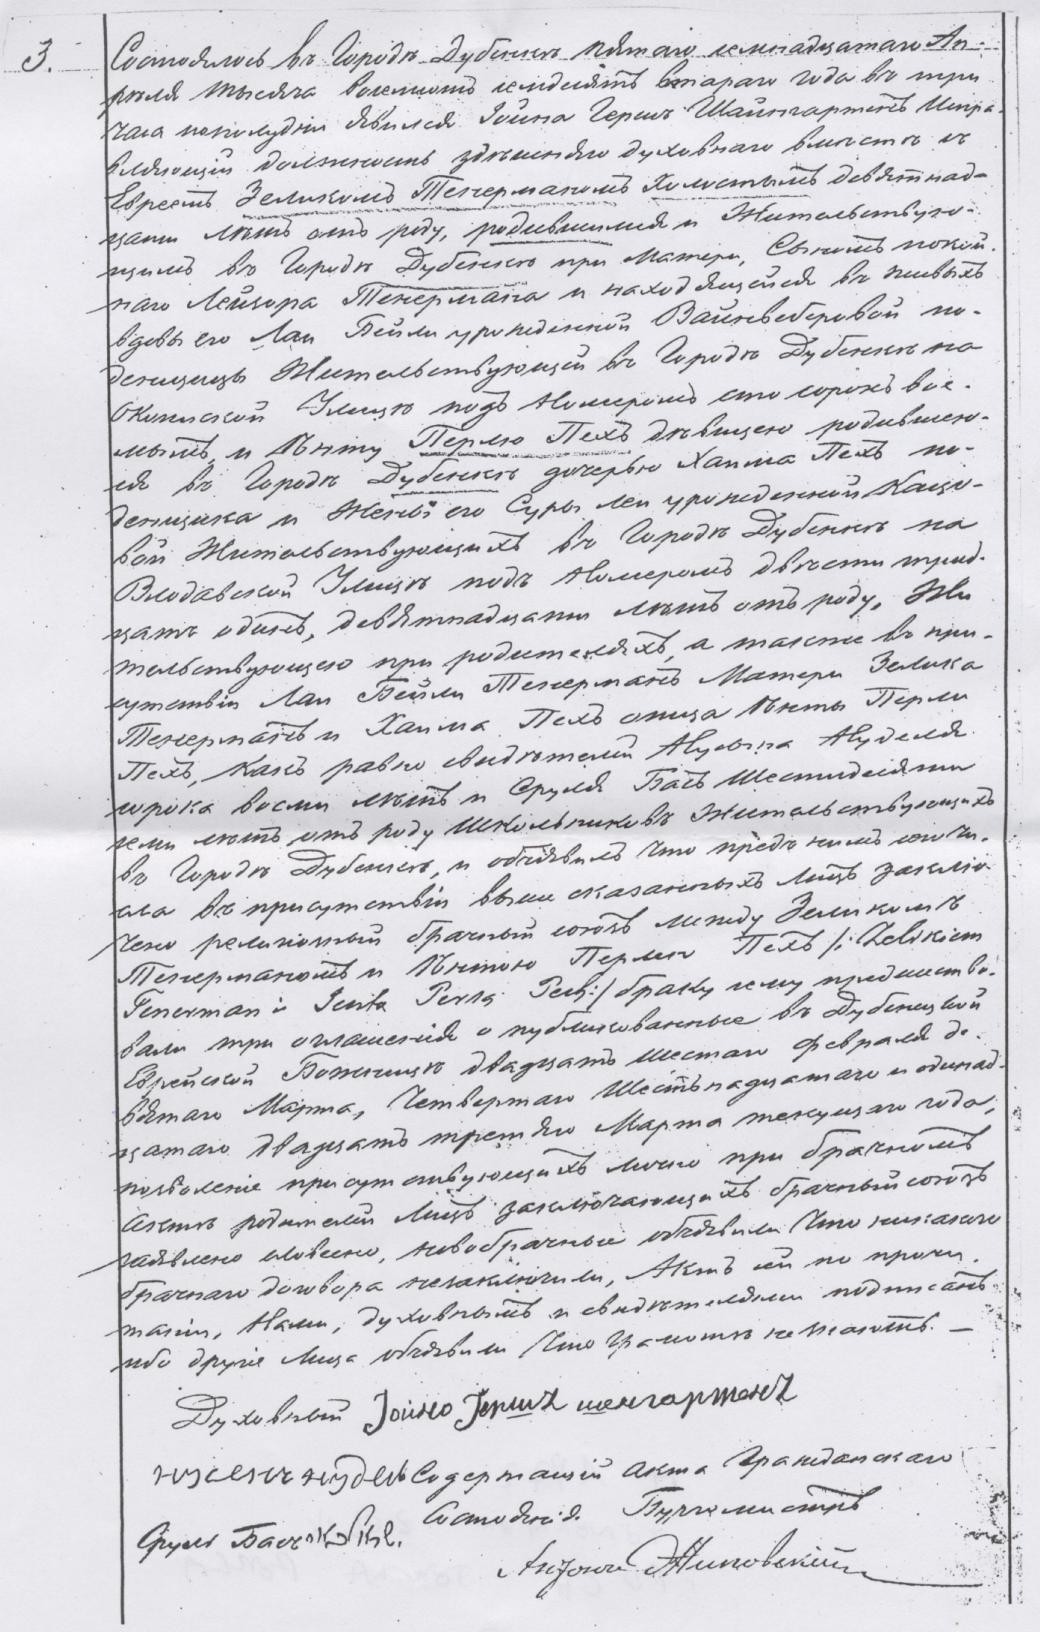 3.
Состоялось въ Городѣ Дубенкѣ пятаго семнадцатаго Ап-
рѣля тысяча восемьсотъ семдесятъ втараго года въ три
часа пополудни явился Іойна Гершъ Шайнгартенъ Испра-
вляющій должность здѣшняго духовнаго вмѣстѣ съ
Евреемъ Зеликомъ Тенерманомъ Холостымъ девятнад-
цати лѣтъ отъ роду, родившимся и Жительствую-
щимъ въ Городѣ Дубенкѣ при Матери, Сыномъ покой-
наго Лейзора Тенермана и находящейся въ живыхъ
вдовы его Лаи Бейли урожденной Вайнвеберовой по-
денщицы Жительствующей въ Городѣ Дубенкѣ на
Улицѣ подъ Номеромъ сто сорокъ вос-
мымъ, и Ѣнту Перлю Пехъ дѣвицею родившею-
ся въ Городѣ Дубенкѣ дочерью Хаима Пехъ по-
денщика и Жены его Суры Леи урожденной Кацо-
вой Жительствующихъ въ Городѣ Дубенкѣ на
Влодавской Улицѣ подъ Номеромъ двѣсти трид-
цать одинъ, девятнадцати лѣтъ отъ роду, Жи
тельствующею при родителяхъ, а также въ при-
сутствіи Лаи Бейли Тенерманъ Матери Зелика
Тенерманъ и Хаима Пехъ отца Ѣнты Перли
Пехъ, Какъ равно свидѣтелей Нусына Нуделя
сорока восми лѣтъ и Сруля Басъ Шестидесяти
семи лѣтъ отъ роду Школьниковъ Жительствующихъ
въ Городѣ Дубенкѣ, и объявилъ что предъ нимъ сего чи-
сла въ присутствіи выше сказанныхъ лицъ заклю-
чено религіозный брачный союзъ между Зеликомъ
Тенерманомъ и Ѣнтою Перлею Пехъ /: Zelikiem
Tenerman i Jentą Perlą Pech :/ браку сему предшество-
вали три оглашенія опубликованные въ Дубенецкой
Еврейской Божницѣ двадцать шестаго февраля де-
вятаго Марта, Четвертаго Шестьнадцатаго и одинад-
цатаго двадцать третяго Марта текущаго года,
позволеніе присутствующихъ лично при брачномъ
Актѣ родителей лицъ заключающихъ брачный союзъ
изъявлено словесно, новобрачные объявили что никакого
брачнаго договора незаключили, Актъ сей по прочи-
таніи, Нами, духовнымъ и свидѣтелями подписанъ
ибо другіе лица объявили что Грамотѣ не знаютъ. —
Духовный Іойно Гершъ шенгартенъ
нусенъ нудель Содержащій Акта Гражданскаго
Состоянія Бургомистръ
Сруль Басъ